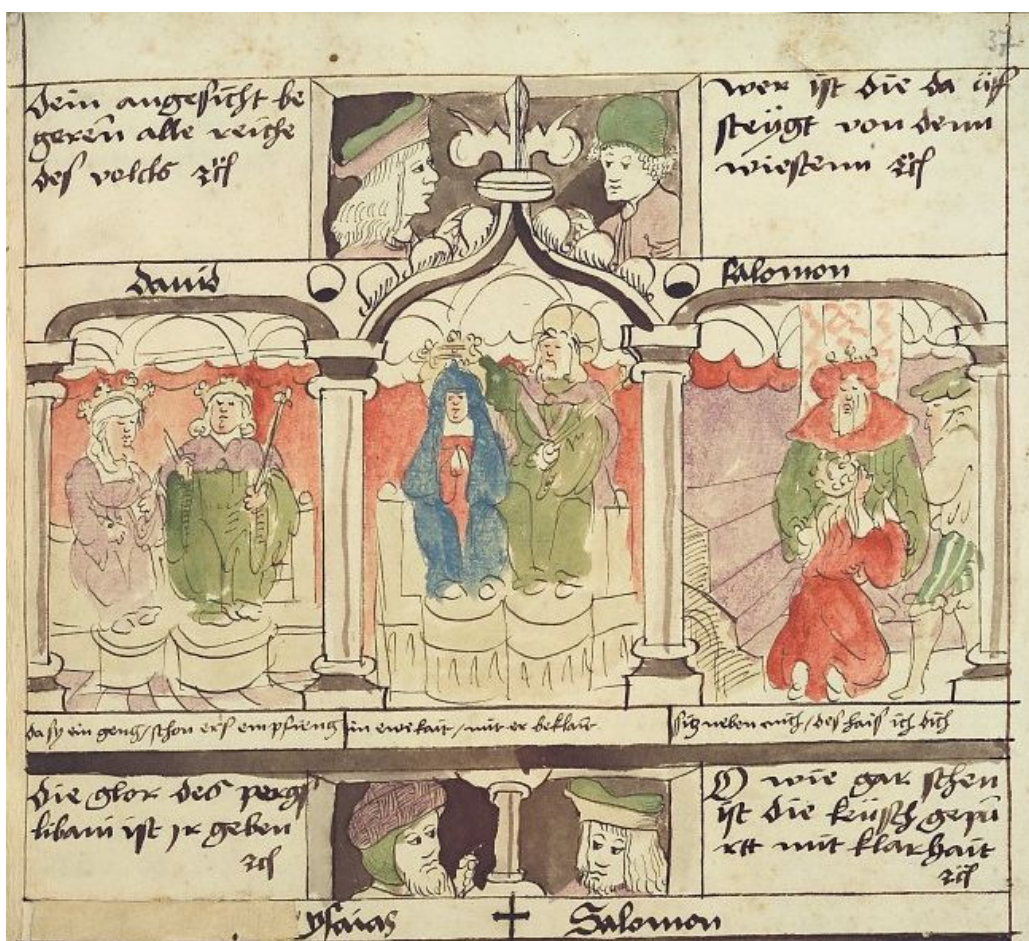 Dein angesicht be
geren alle reiche
des volcks rc
wer ist die da uff
steygt von denn
wiestenn rc
david
salomon
da sy ein geng / schon ers empfieng
in ewikait / mit er beklait
sitz neben mich / des hais ich dich
Die glor des pergs
libani ist ir geben
rc
O wie gar schen
ist die keusch gepu
rtt mit klarhait
rc
ysaias
Salomon
37